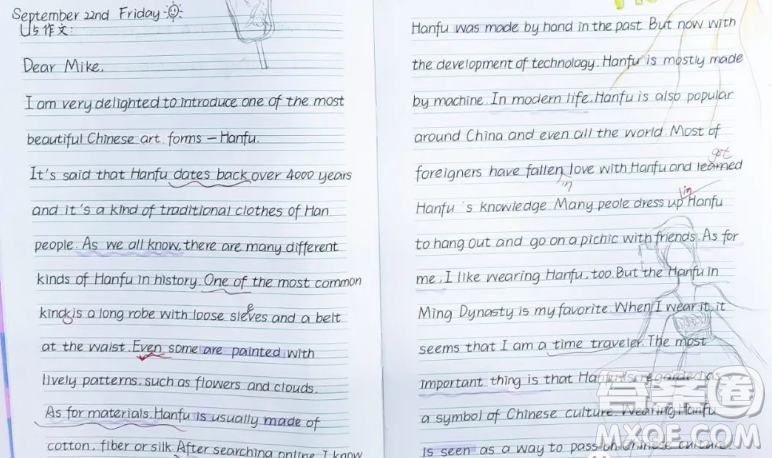 September 22nd Friday
U5作文:
Dear Mike,
I am very delighted to introduce one of the most
beautiful Chinese art forms — Hanfu.
It's said that Hanfu dates back over 4000 years
and it's a kind of traditional clothes of Han
people. As we all know, there are many different
kinds of Hanfu in history. One of the most common
kinds is a long robe with loose sleves and a belt
e
at the waist. Even some are painted with
lively patterns, such as flowers and clouds.
As for materials, Hanfu is usually made of
cotton, fiber or silk. After searching online, I know
Hanfu was made by hand in the past. But now with
the development of technology, Hanfu is mostly made
by machine. In modern life, Hanfu is also popular
around China and even all the world. Most of
got
foreigners have fallen love with Hanfu and learned
in
in
Hanfu's knowledge. Many peole dress up Hanfu
to hang out and go on a pichic with friends. As for
me, I like wearing Hanfu, too. But the Hanfu in
Ming Dynasty is my favorite. When I wear it, it
seems that I am a time traveler. The most
important thing is that Hanfu is regarded as
a symbol of Chinese culture. Wearing Hanfu
is seen as a way to pass on Chinese culture.
答案圈
MXQE.COM